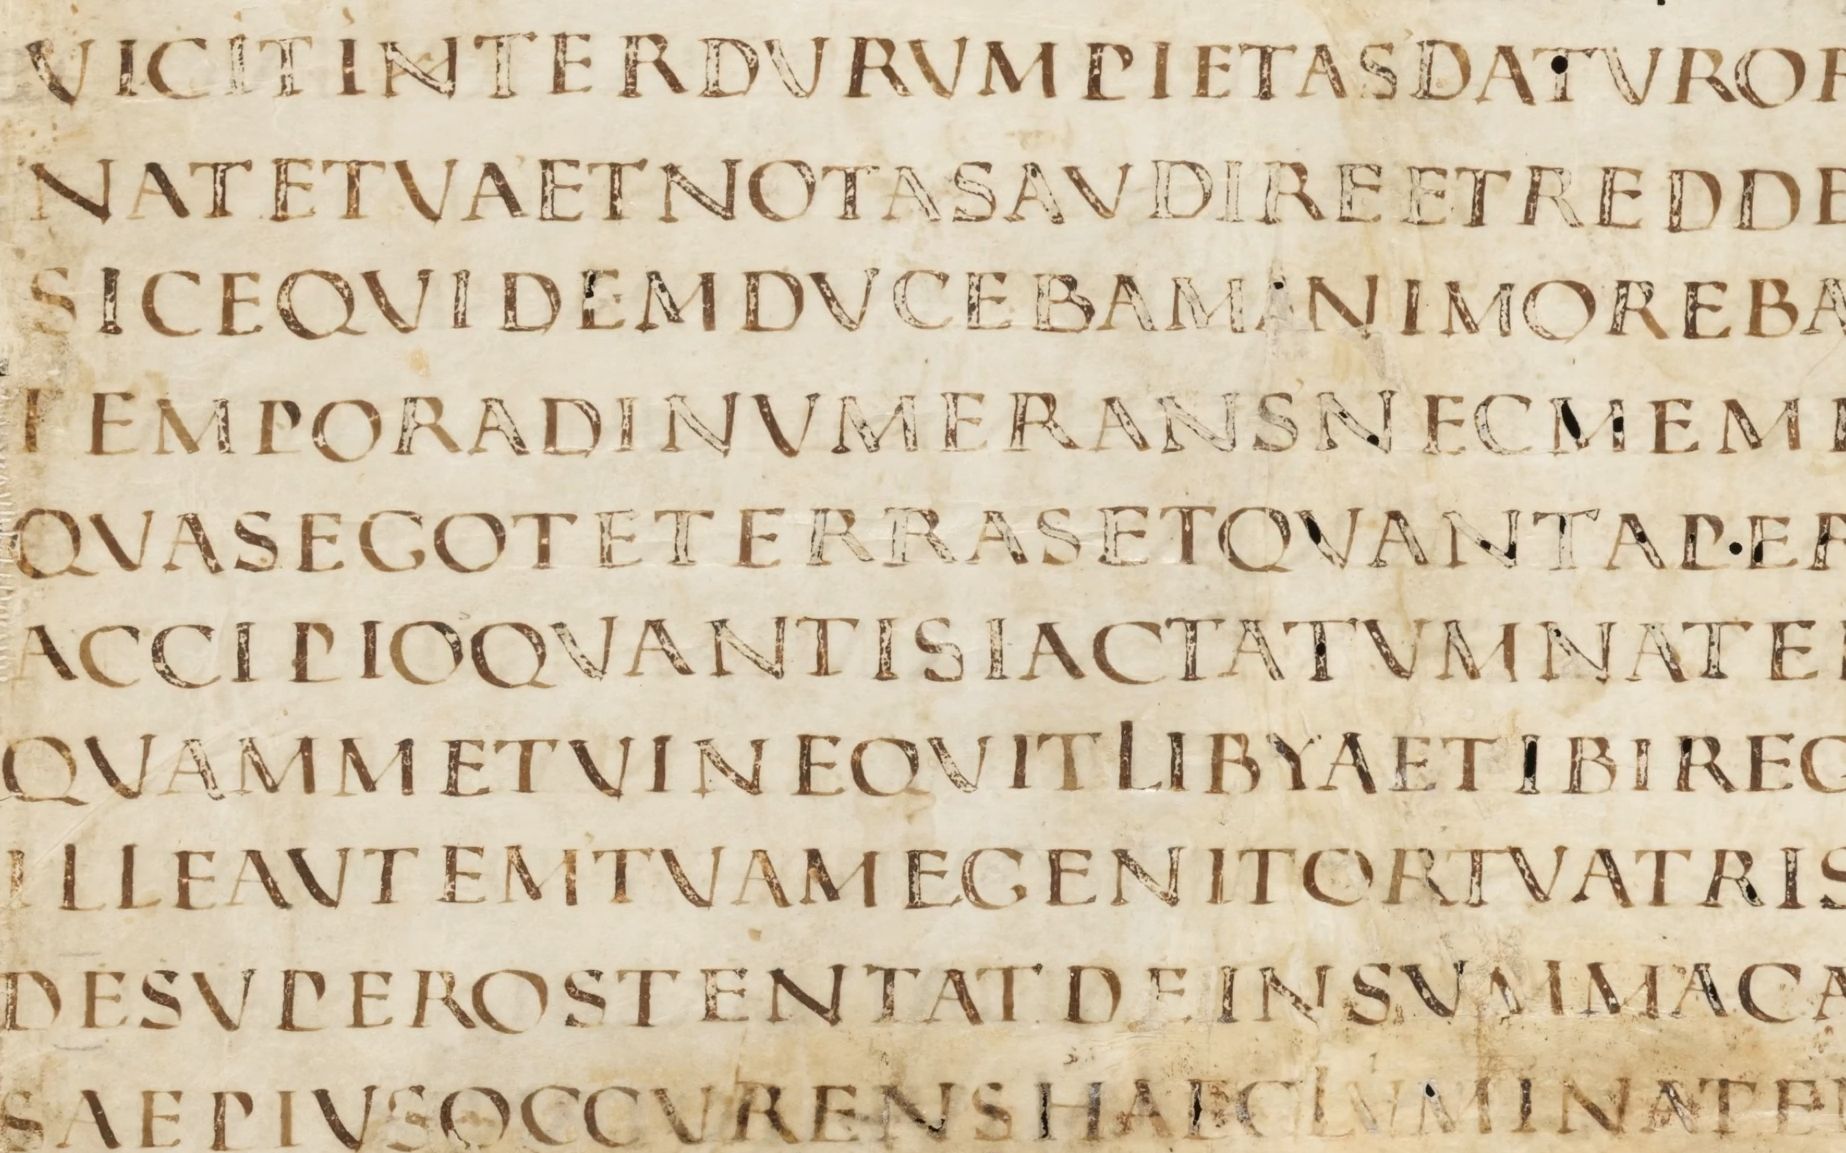 VICITINTERDVRVMPIETASDATVROR
NATETVAETNOTASAVDIREETREDDE
SICEQVIDEMDVCEBAMANIMOREBA
TEMPORADINVMERANSNECMEME
QVASEGOTETERRASETQVANTAP·ER
ACCIPIOQVANTISIACTATVMNATE
QVAMMETVINEQVITLIBYAETIBIREG
ILLEAVTEMTVAMEGENITORTVATRIS
DESVPEROSTENTATDEINSVMMACA
SAEPIVSOCCVRENSHAECLVMINATE